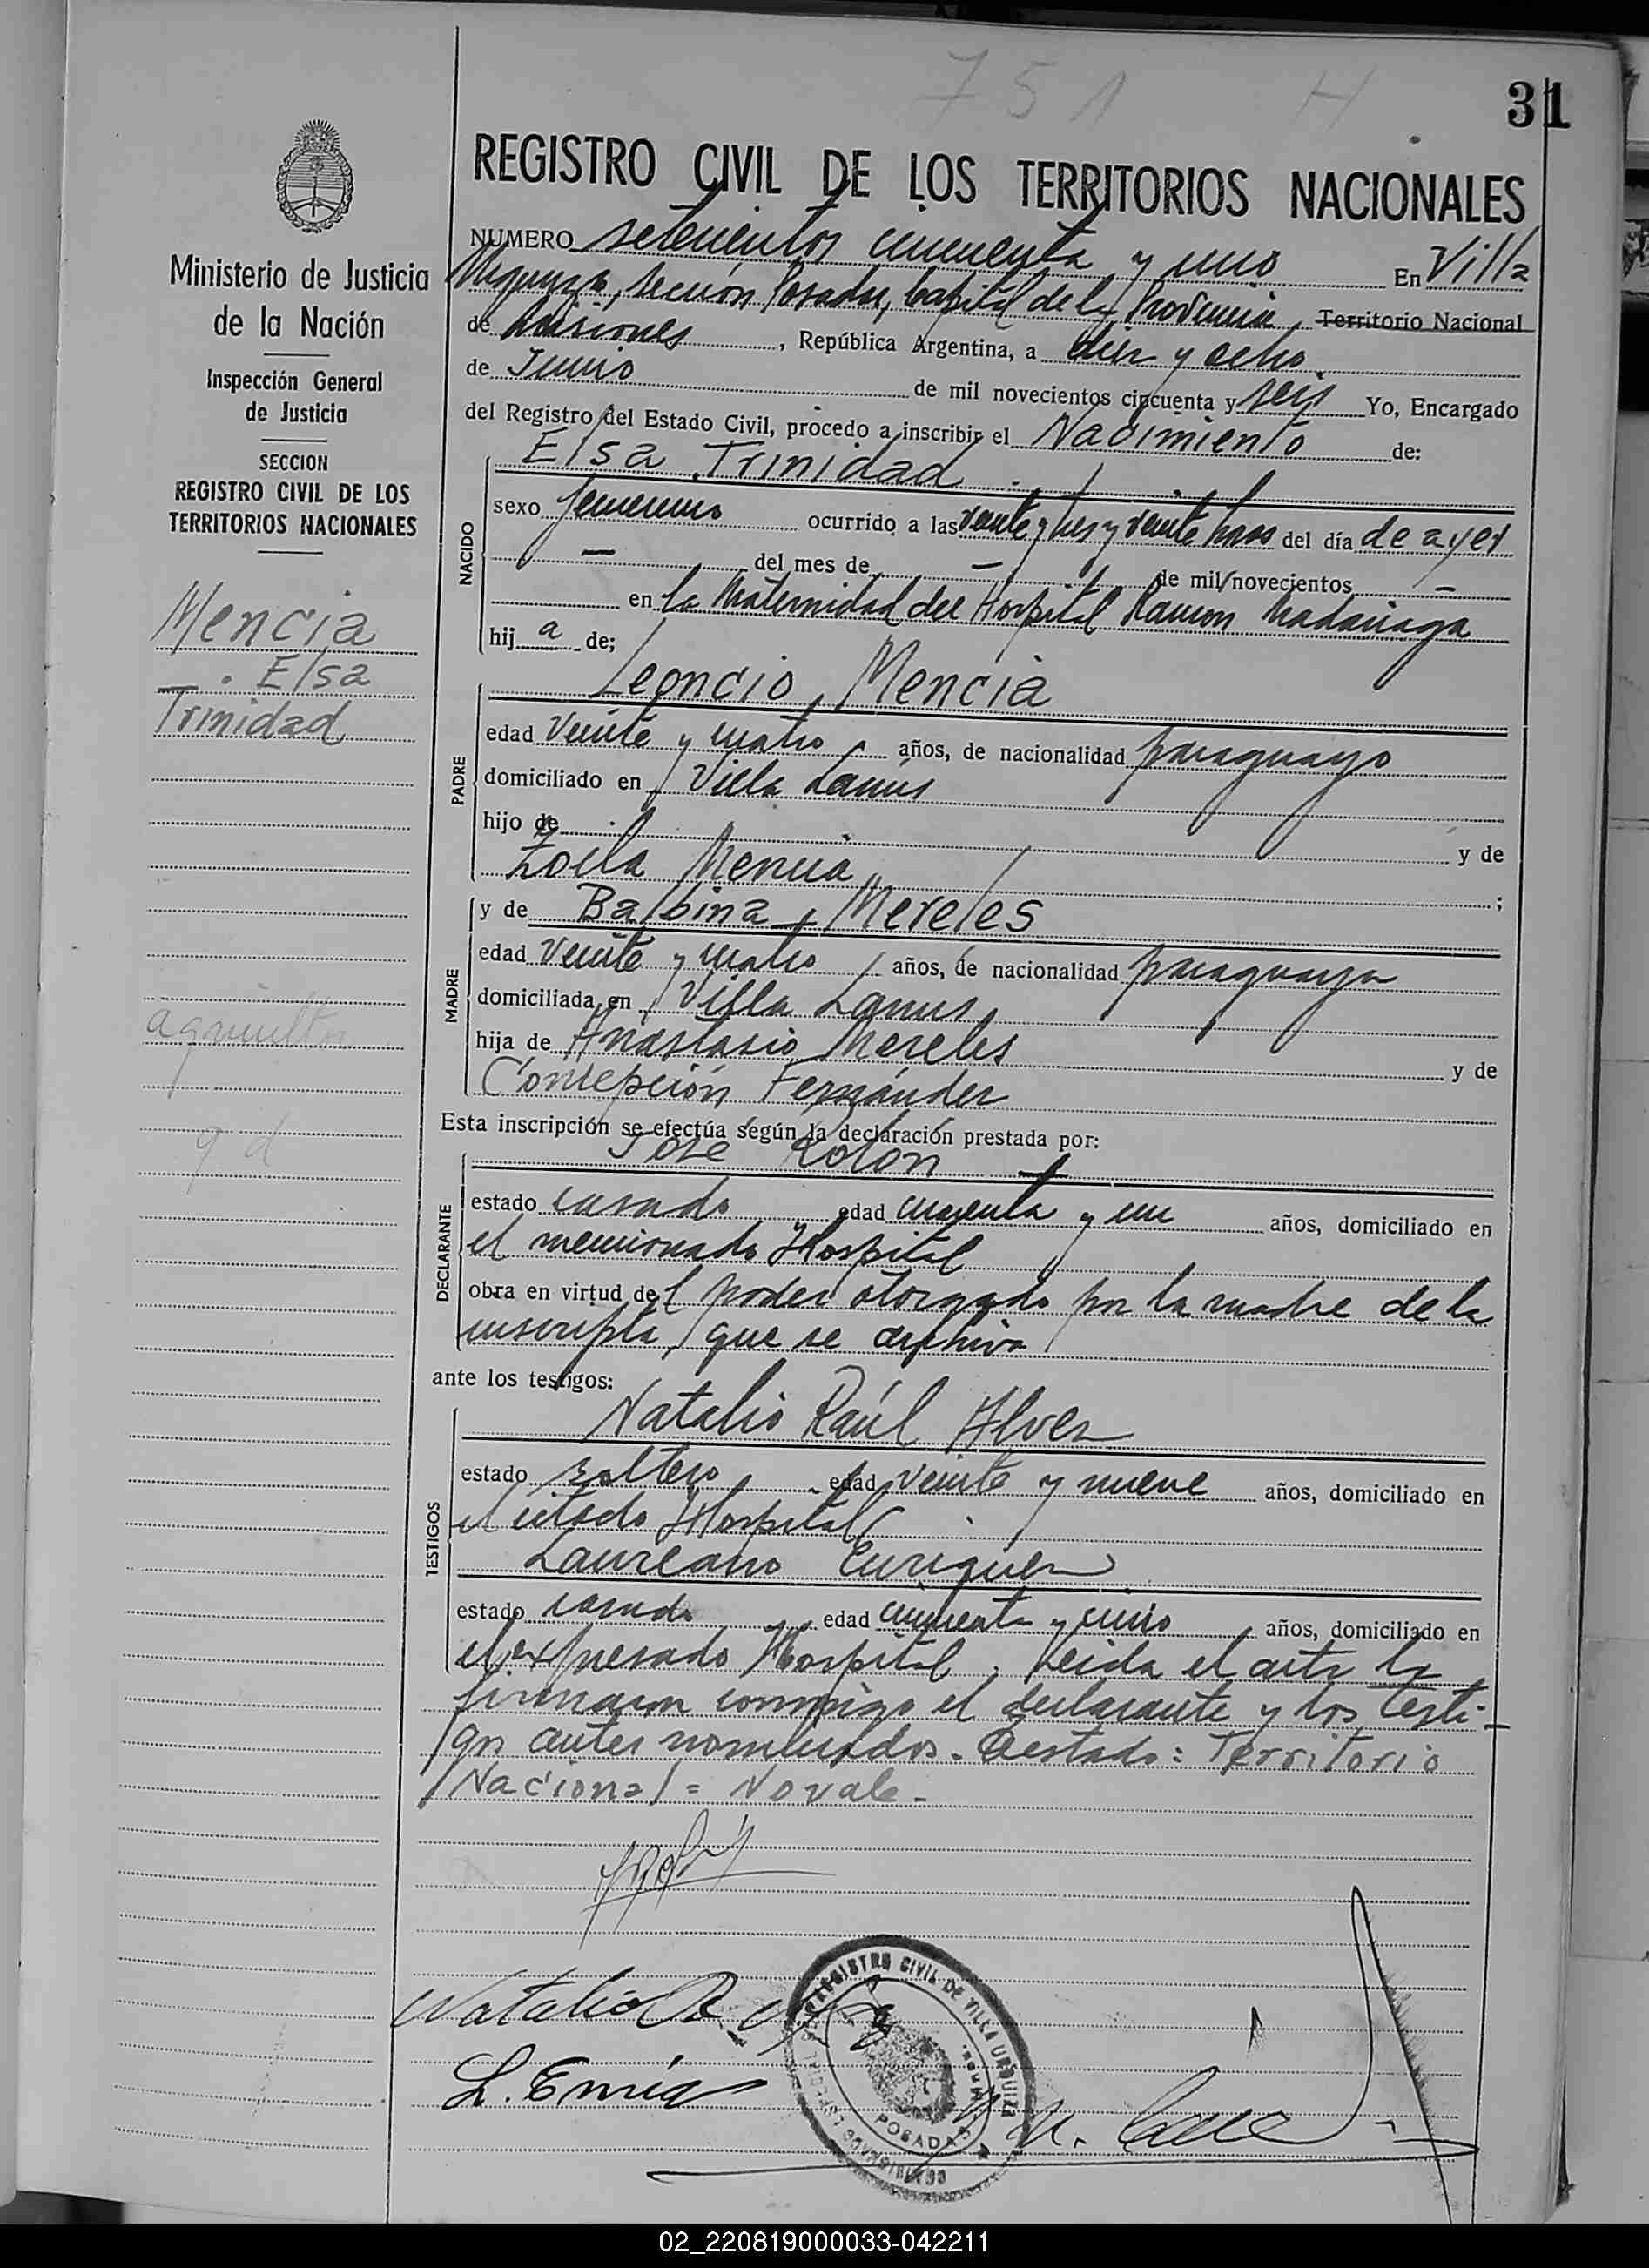 751 H
31
REGISTRO CIVIL DE LOS TERRITORIOS NACIONALES
Ministerio de Justicia
de la Nación
Inspección General
de Justicia
SECCION
REGISTRO CIVIL DE LOS
TERRITORIOS NACIONALES
Mencia
Elsa
Trinidad
agricultor
q d
NUMERO setecientos cincuenta y uno En Villa
Urquiza, sección Posadas, Capital de la Provincia, Territorio Nacional
de Misiones, República Argentina, a diez y ocho
de Junio de mil novecientos cincuenta y seis Yo, Encargado
del Registro del Estado Civil, procedo a inscribir el Nacimiento de:
NACIDO
Elsa Trinidad
sexo femenino ocurrido a las veinte y tres y veinte horas del día de ayer
— del mes de — de mil novecientos —
en la Maternidad del Hospital Ramon Madariaga
hij a de;
PADRE
Leoncio Mencia
edad veinte y cuatro años, de nacionalidad paraguayo
domiciliado en Villa Lanús
hijo de y de
Zoila Mencia ;
MADRE
y de Balbina Mereles
edad veinte y cuatro años, de nacionalidad paraguaya
domiciliada en Villa Lanus
hija de Anastasio Mereles y de
Concepción Fernández
Esta inscripción se efectúa según la declaración prestada por:
DECLARANTE
José Rolón
estado casado edad cuarenta y un años, domiciliado en
el mencionado Hospital
obra en virtud del poder otorgado por la madre de la
inscripta, que se archiva
ante los testigos:
TESTIGOS
Natalio Raúl Alvez
estado soltero edad veinte y nueve años, domiciliado en
el citado Hospital
Laureano Enriquez
estado casado edad cincuenta y cinco años, domiciliado en
el expresado Hospital. Leida el acta la
firmaron conmigo el declarante y los testi-
gos antes nombrados. Testado: Territorio
Nacional = No vale.
REGISTRO CIVIL DE VILLA URQUIZA
POSADAS
02_220819000033-042211